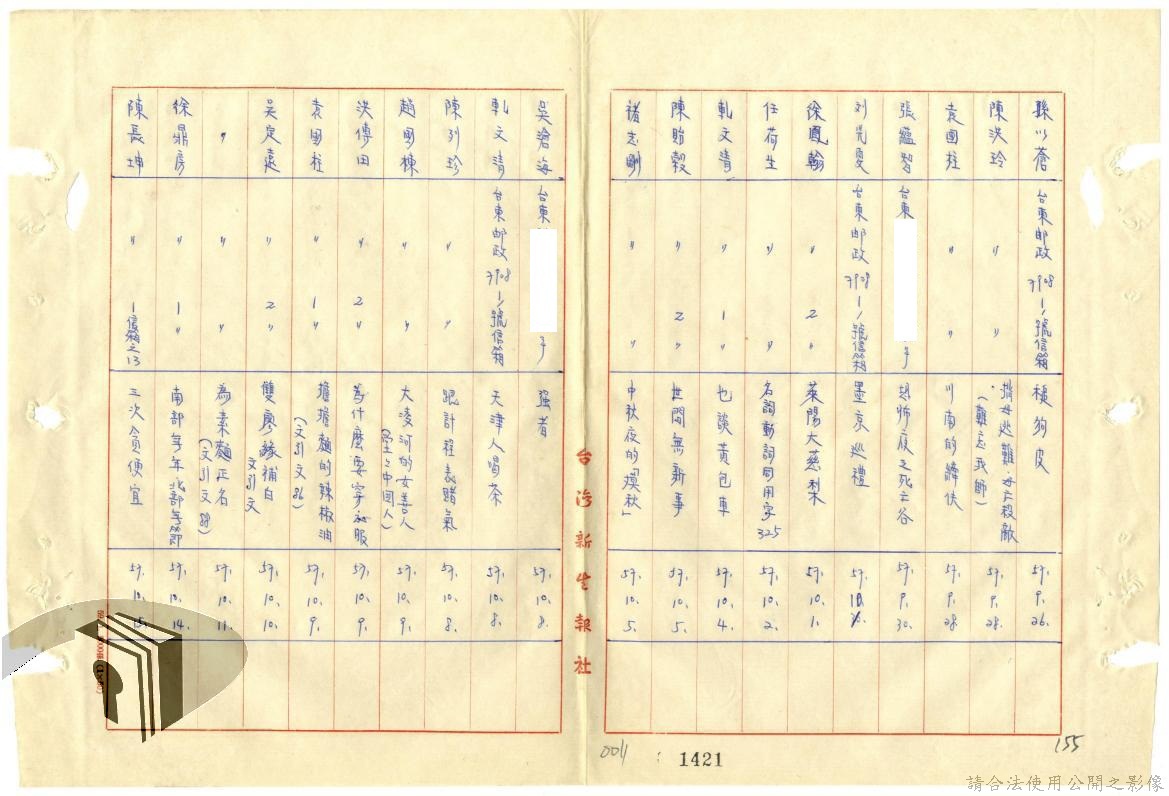 孫以蒼 台東郵政7908-1號信箱 穫狗皮 57. 9. 26.
陳洪玲 〃 〃 揹母逃難·母亡殺敵(難忘我師) 57. 9. 28.
袁國柱 〃 〃 川南的縴伕 57. 9. 28.
張蘊智 台東 57. 9. 30.
刘光夏 台東邮政7908-1號信箱 墨京巡禮 57. 10.
徐鳳翰 〃 2 萊陽大慈梨 57. 10. 1.
任荷生 〃 〃 名詞動詞同用字325 57. 10. 2.
軋文清 〃 1 〃 也談黃包車 57. 10. 4.
陳貽穀 〃 2 〃 世間無新事 57. 10. 5.
褚志剛 〃 〃 中秋夜的「煥秋」 57. 10. 5.
台灣新生報社
吳滄海 台東 強者 57. 10. 8.
軋文清 台東邮政7908-1號信箱 天津人喝茶 57. 10. 8.
陳列珍 〃 〃 跟計程表賭氣 57. 10. 8.
趙國棟 〃 〃 大凌河的女善人(堂上中国人) 57. 10. 9.
洪傳田 〃 2 〃 為什麼要穿 服 57. 10. 9.
袁國柱 〃 1 〃 擔擔麵的辣椒油(文引文86) 57. 10. 9.
吳定遠 〃 2 〃 雙廖緣補白 文引文 57. 10. 10.
〃 〃 〃 為素麵正名(文引文88) 57. 10. 11.
徐鼎房 〃 1 〃 南部爭年北部爭節 57. 10. 14.
陳長坤 〃 1信箱之13 三次貪便宜 57. 10. 15.
0011
1421
155
請合法使用公開之影像